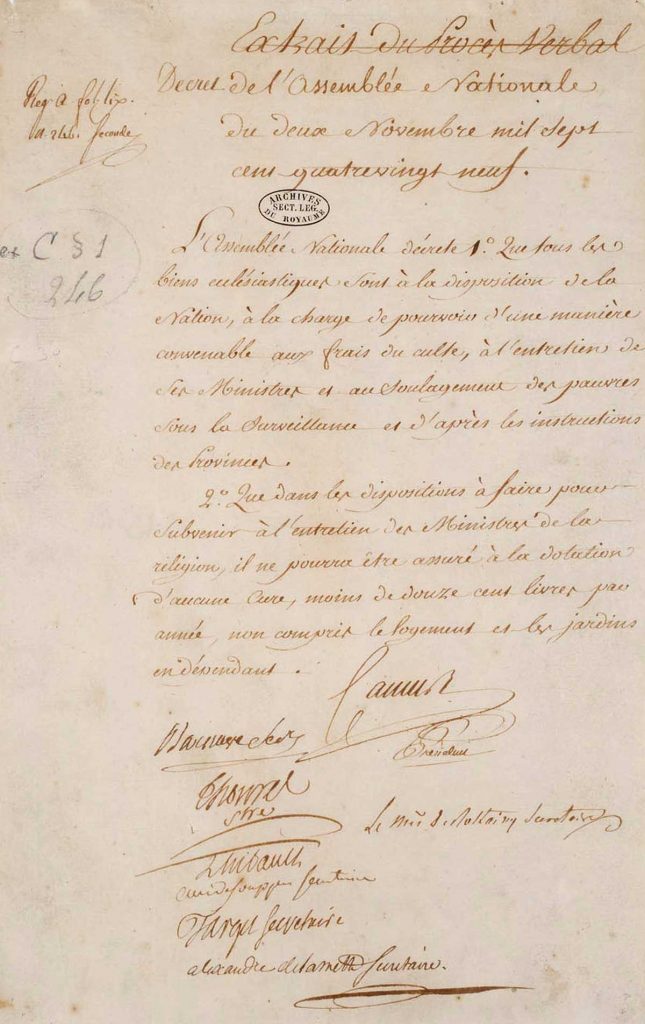 Extrait du Procès Verbal
Decret de l'Assemblée Nationale
du deux Novembre mil sept
cent quatrevingt neuf.
Reg. A fol. lix.
n. 246. Seconde
ARCHIVES
SECT. LEG.
DU ROYAUME
C § 1
246
L'Assemblée Nationale décrete 1.° Que tous les
biens ecclésiastiques sont à la disposition de la
Nation, à la charge de pourvoir d'une manière
convenable aux frais du culte, à l'entretien de
ses Ministres et au soulagement des pauvres
sous la surveillance et d'après les instructions
des Provinces.
2.° Que dans les dispositions à faire pour
subvenir à l'entretien des Ministres de la
réligion, il ne pourra être assuré à la dotation
d'aucune Cure, moins de douze cent livres par
année, non compris le logement et les jardins
en dépendant.
Camus
Président
Barnave
Thouret
Stre
Le Mis de Secretaire
Thibault
curé de souppes secretaire
Target Secretaire
alexandre delameth secretaire.